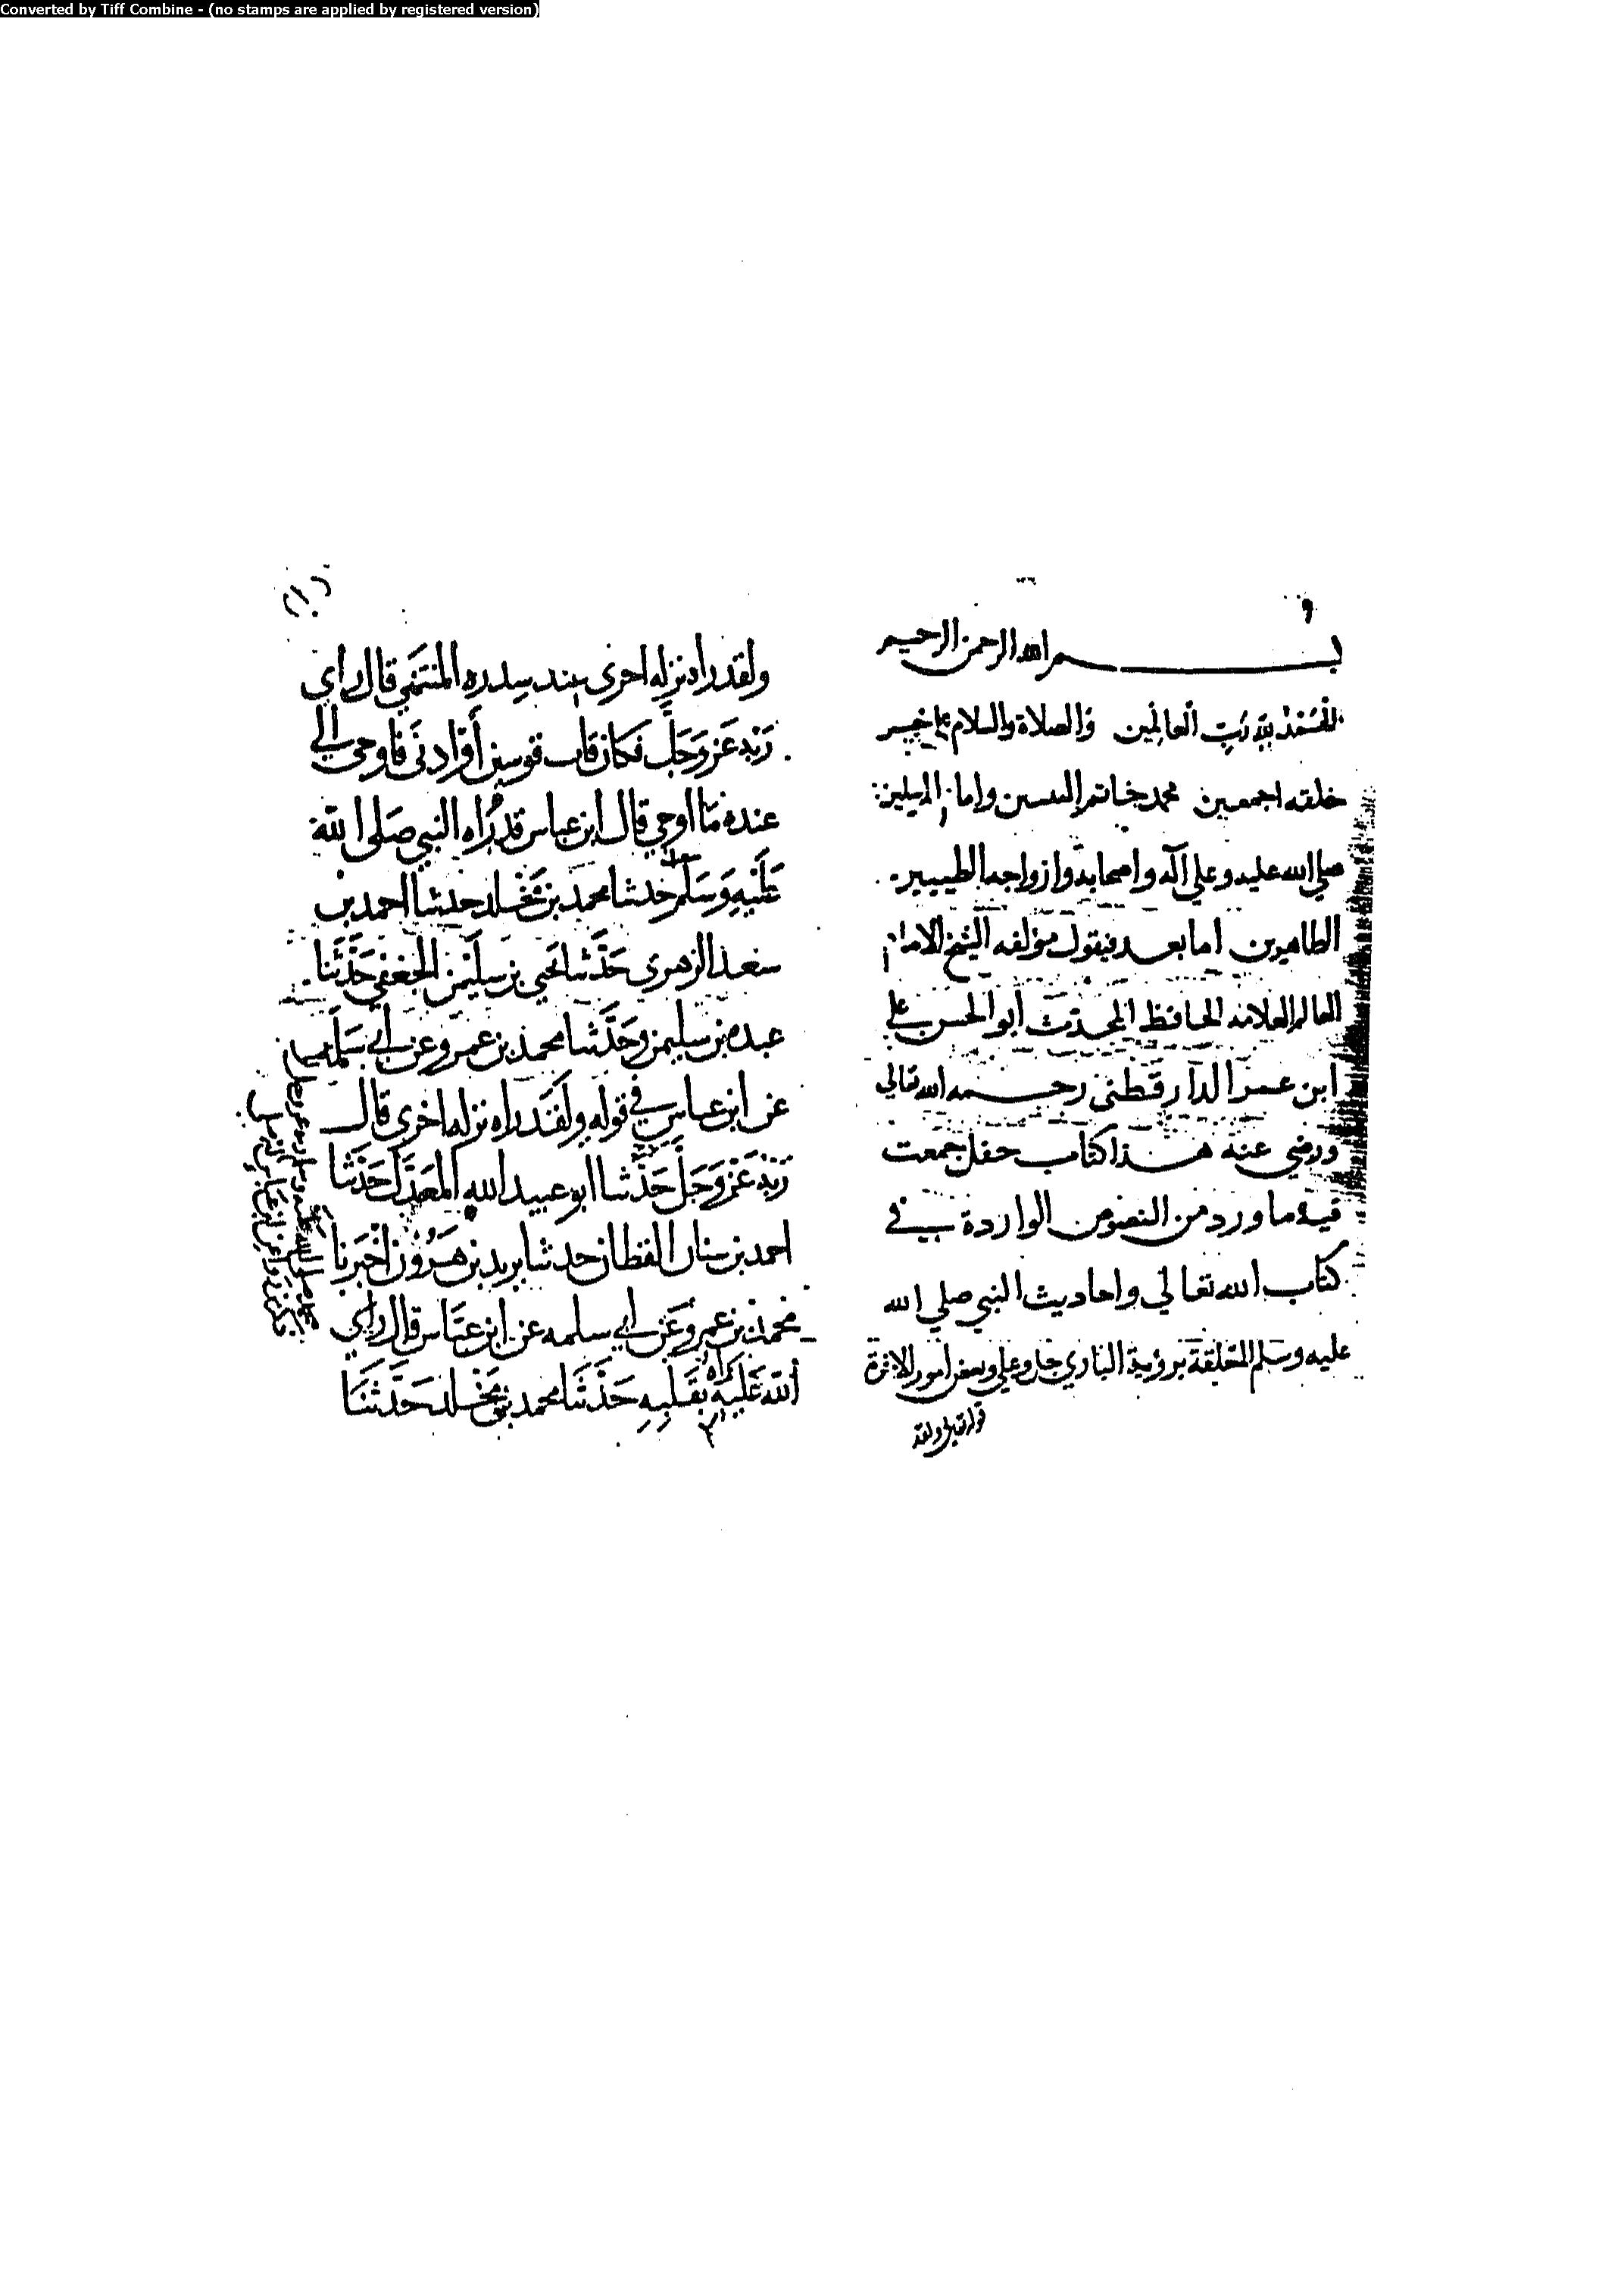 Converted by Tiff Combine - (no stamps are applied by registered version)
بسم الله الرحمن الرحيم
الحمد لله رب العالمين والصلاة والسلام على خير
خلقه اجمعين محمد خاتم النبيين وامام المرسلين
صلى الله عليه وعلى آله واصحابه وازواجه الطيبين
الطاهرين اما بعد فيقول مؤلفه الشيخ الامام
العالم العلامه الحافظ المحدث ابو الحسن علي
ابن عمر الدارقطني رحمه الله تعالى
ورضي عنه هذا كتاب حفل جمعت
فيه ما ورد من النصوص الواردة في
كتاب الله تعالي واحاديث النبي صلي الله
عليه وسلم المتعلقة برؤية الباري جل وعلي وبعض امور الاخرة
قوله تعالى ولقد
(١٠)
ولقد راه نزله اخرى عند سدره المنتهي قال راي
ربه عز وجل فكان قاب قوسين أو ادنى فاوحي الي
عنده ما اوحي قال ابن عباس قد رآه النبي صلى الله
عليه وسلم حدثنا محمد بن مخلد حدثنا احمد بن
سعد الزهري حدثنا يحيي بن سليمن الجعفي حدثنا
عبده بن سليمن وحدثنا محمد بن عمرو عن ابي سلمه
عن ابن عباس في قوله ولقد راه نزله اخرى قال
ربه عز وجل حدثنا ابو عبيد الله المعدل حدثنا
احمد بن سنان القطان حدثنا يزيد بن هرون اخبرنا
محمد بن عمرو عن ابي سلمه عن ابن عباس قال راي
رآه
الله عليه بقلبه حدثنا محمد بن مخلد حدثنا